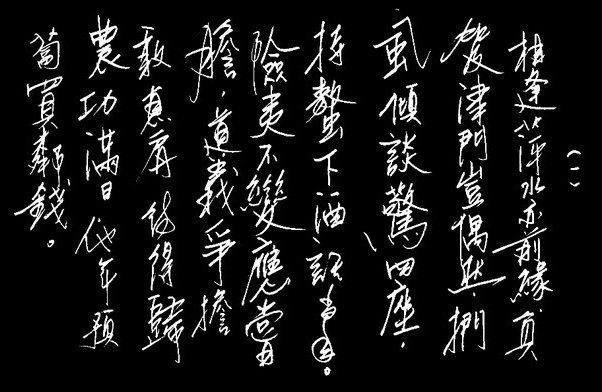 (一)
相逢萍水亦前緣，負
笈津門豈偶然，捫
虱傾談驚四座，
持螯下酒話當年。
險夷不變應嘗
膽，道義爭擔
敢息肩，待得歸
農功滿日，他年預
蔔買鄰錢。